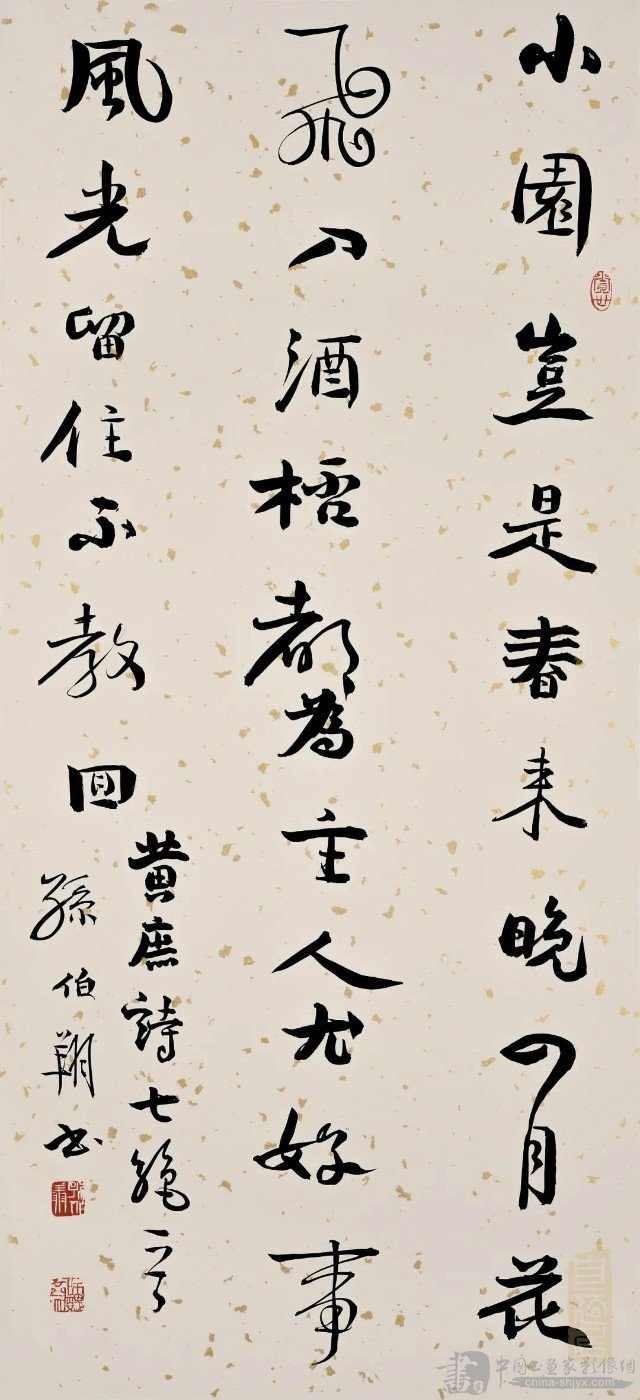 小園豈是春来晚四月花
飛入酒桮都為主人尤好事
風光留住不教回
黄庶詩七絶一首
孫伯翔書
中國书画家影像網
china-shjyx.com